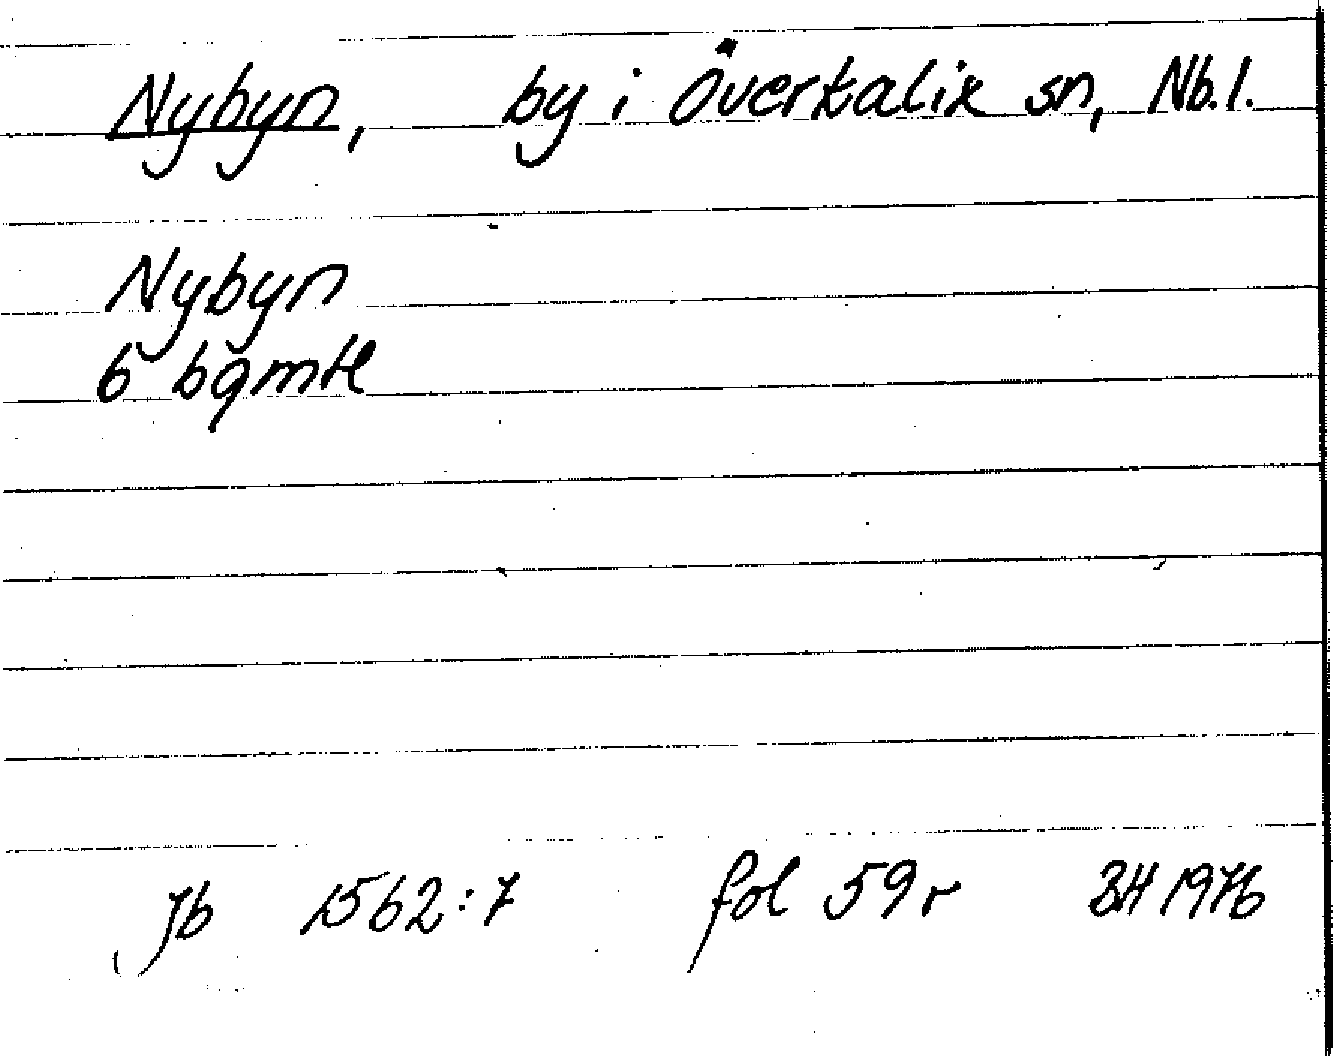 Nybyn, by i Överkalix sn, Nb.l.
Nybyn
6 bgmtl
Jb 1562:7 fol 59r BH 1976